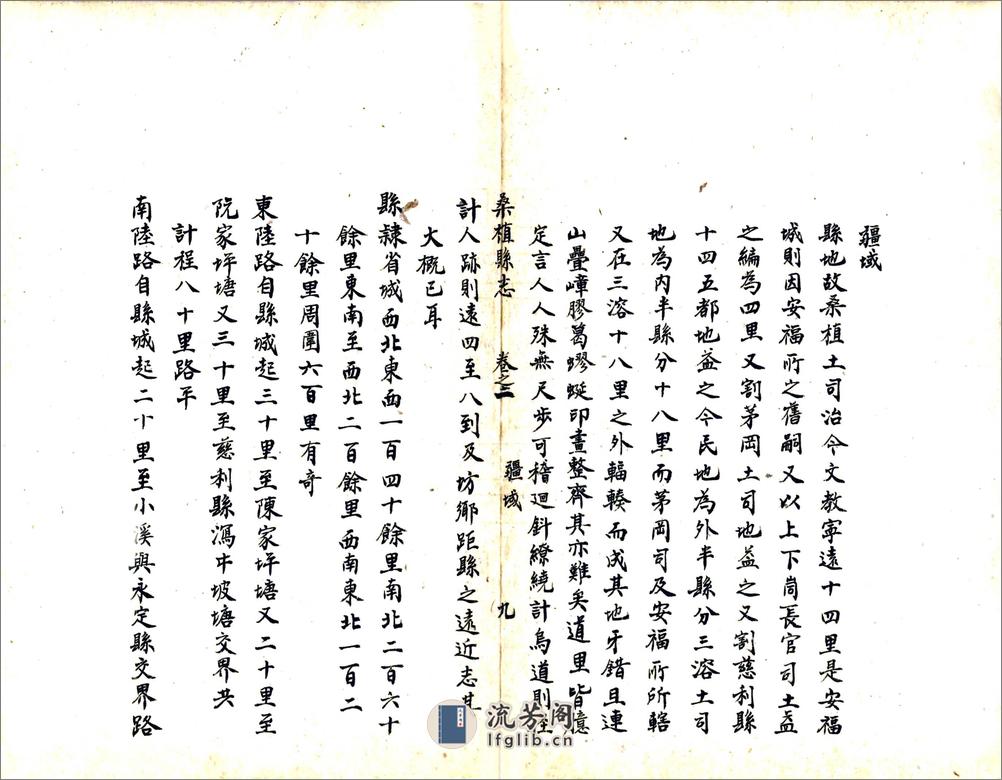 疆域
縣地故桑植土司治今文教寧遠十四里是安福
城則因安福所之舊嗣又以上下峝長官司土益
之編為四里又割茅岡土司地益之又割慈利縣
十四五都地益之今民地為外半縣分三溶土司
地為内半縣分十八里而茅岡司及安福所所轄
又在三溶十八里之外輻輳而成其地牙錯且連
山疊嶂膠葛蟉蜒印畫整齊其亦難矣道里皆憶
定言人人殊無尺步可稽迴斜繚繞計鳥道則
桑植縣志 卷之二 疆域 九
計人跡則遠四至八到及坊鄉距縣之遠近志其
大概已耳
縣隸省城西北東西一百四十餘里南北二百六十
餘里東南至西北二百餘里西南東北一百二
十餘里周圍六百里有奇
東陸路自縣城起三十里至陳家坪塘又二十里至
阮家坪塘又三十里至慈利縣瀉牛坡塘交界共
計程八十里路平
南陸路自縣城起二十里至小溪與永定縣交界路
流芳阁
lfglib.cn